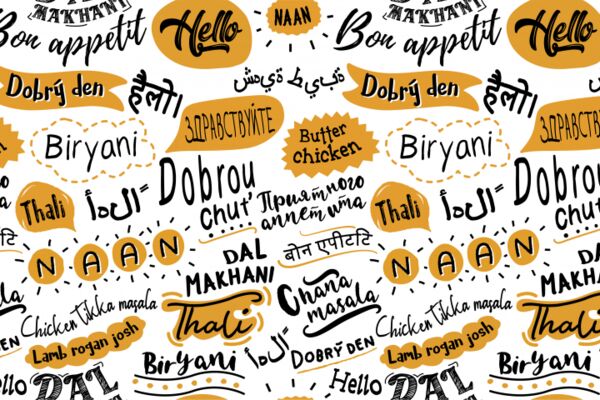 DAL
MAKHANI
Bon appetit
Hello
NAAN
Bon appetit
Hello
Dobrý den
हैलो।
Dobrý den
हैलो।
ЗДРАВСТВУЙТЕ
ЗДРАВСТВУЙТЕ
Biryani
Butter
chicken
Biryani
Thali
Dobrou
chuť
Приятного
аппетита
Thali
Dobrou
chuť
NAAN
DAL
MAKHANI
बोन एपीटटि
NAAN
DAL
MAKHANI
Chicken Tikka masala
Thali
Chana
masala
Chicken Tikka masala
Thali
Lamb rogan josh
DOBRÝ DEN
Lamb rogan josh
Biryani
Biryani
Hello
DAL
Hello
DAL